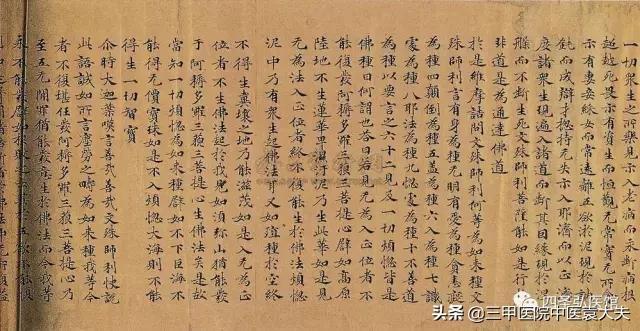 一切眾生之所樂見示入老病而永斷病根
超越死畏示有資生而恒觀无常實无所
示有妻妾婇女而常遠離五欲淤泥現於
鈍而成辯才捴持无失示入耶濟而以正濟
度諸眾生現遍入諸道而斷其因緣現於涅
槃而不斷生死文殊師利菩薩能如是行於
非道是為通達佛道
於是維摩詰問文殊師利何等為如來種文
殊師利言有身為種无明有愛為種貪恚癡
為種四顛倒為種五蓋為種六入為種七識
處為種八耶法為種九惱處為種十不善道
為種以要言之六十二見及一切煩惱皆是
佛種曰何謂也荅曰若見无為入正位者不
能復發阿耨多羅三藐三菩提心譬如高原
陸地不生蓮華卑濕汙泥乃生此華如是見
无為法入正位者終不復能生於佛法煩惱
泥中乃有眾生起佛法耳又如殖種於空終
不得生糞壤之地乃能滋茂如是入无為正
位者不生佛法起於我見如須彌山猶能發
于阿耨多羅三藐三菩提心生佛法矣是故
當知一切煩惱為如來種譬如不下巨海不
能得无價寶珠如是不入煩惱大海則不能
得生一切智寶
尒時大迦葉嘆言善哉善哉文殊師利快說
此語誠如所言塵勞之疇為如來種我等今
者不復堪任發阿耨多羅三藐三菩提心乃
至五无間罪猶能發意生於佛法而今我等
永不能發譬如根敗之士其於五欲不能復
四圣弘医馆
头条@三甲医院中医袁大夫